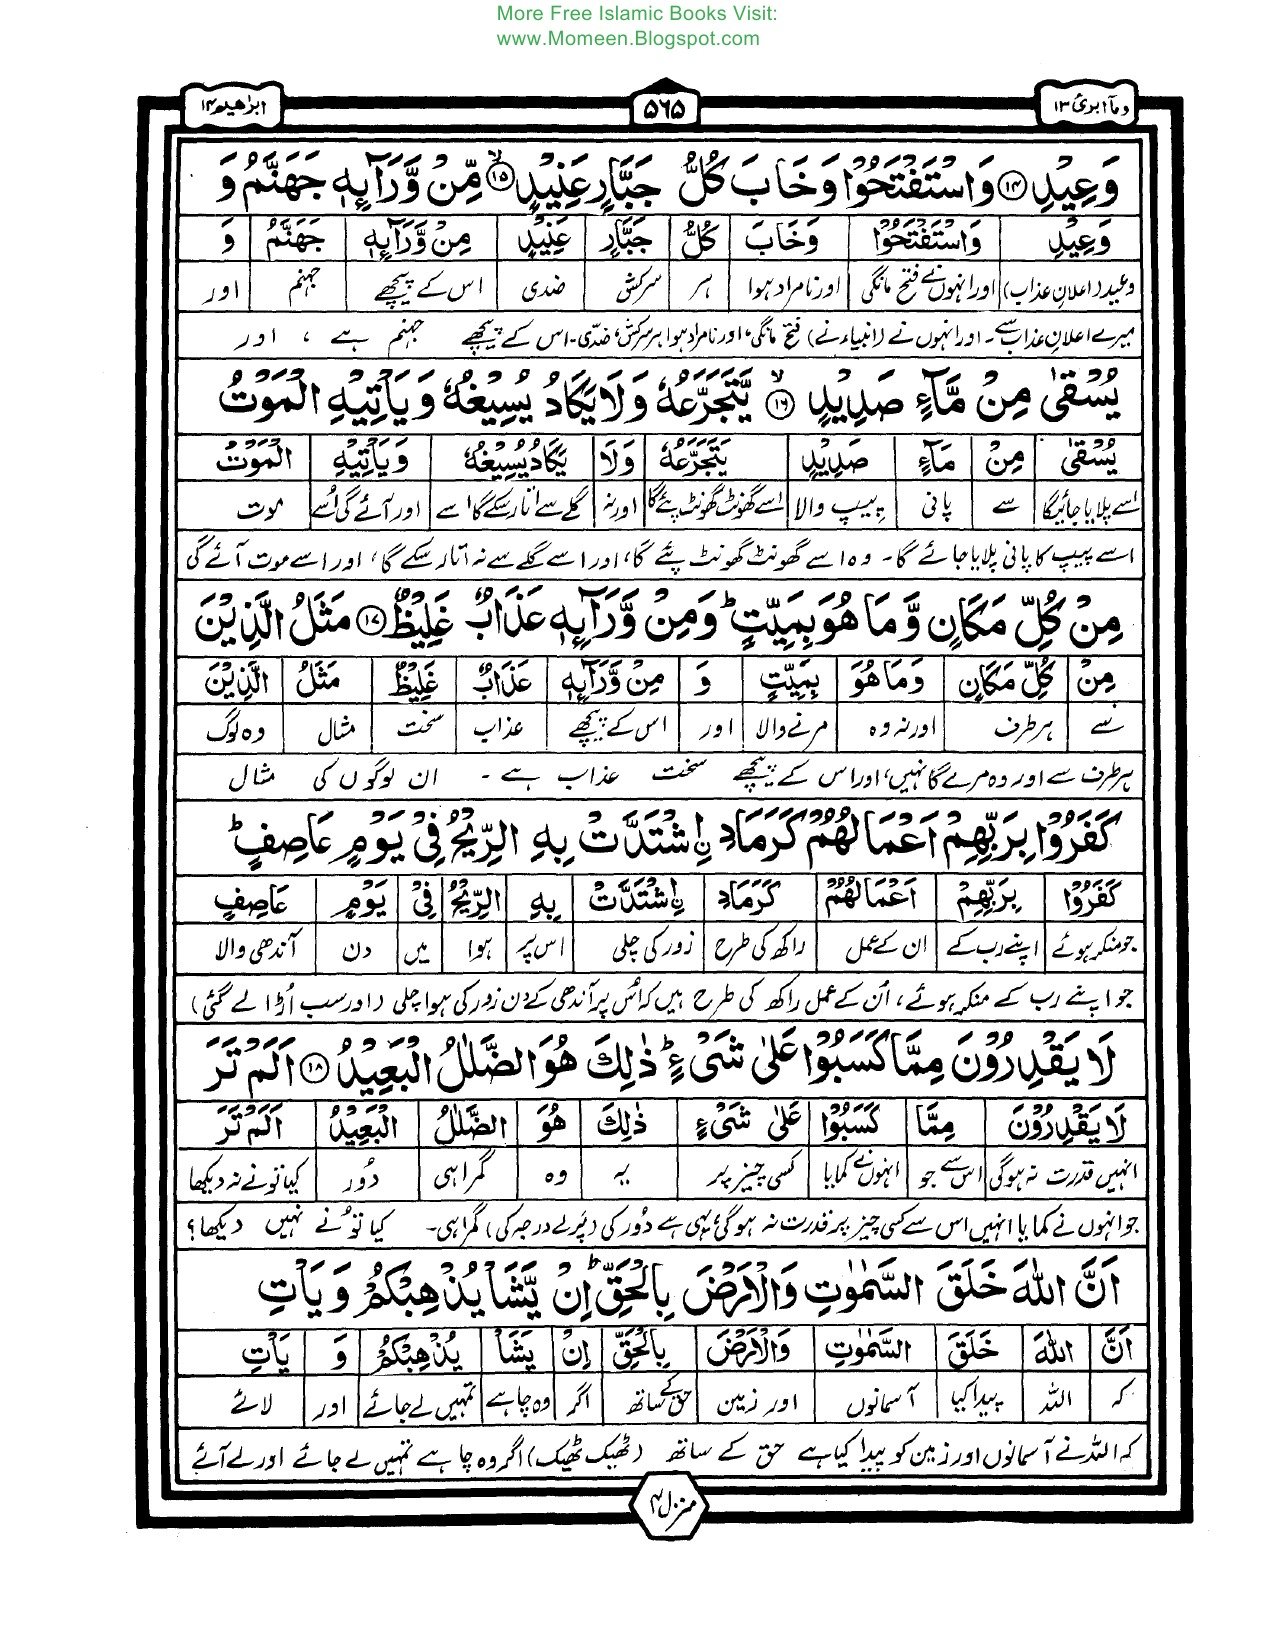 More Free Islamic Books Visit:
www.Momeen.Blogspot.com
ومآ ابرئ ۱۳
۵۶۵
ابرٰهیم ۱۴
وَعِيْدِ ۱۴ وَاسْتَفْتَحُوْا وَخَابَ كُلُّ جَبَّارٍ عَنِيْدٍ ۱۵ۙ مِّنْ وَّرَآىِٕهٖ جَهَنَّمُ وَ
وَعِيْدِ وَاسْتَفْتَحُوْا وَخَابَ كُلُّ جَبَّارٍ عَنِيْدٍ مِنْ وَّرَآىِٕهٖ جَهَنَّمُ وَ
وعید (اعلانِ عذاب) اور انہوں نے فتح مانگی اور نامراد ہوا ہر سرکش ضدی اس کے پیچھے جہنم اور
میرے اعلانِ عذاب سے۔ اور انہوں نے (انبیاء نے) فتح مانگی، اور نامراد ہوا ہر سرکش، ضدّی۔ اس کے پیچھے جہنم ہے ، اور
يُسْقٰى مِنْ مَّآءٍ صَدِيْدٍ ۱۶ۙ يَّتَجَرَّعُهٗ وَلَا يَكَادُ يُسِيْغُهٗ وَيَاْتِيْهِ الْمَوْتُ
يُسْقٰى مِنْ مَآءٍ صَدِيْدٍ يَتَجَرَّعُهٗ وَلَا يَكَادُ يُسِيْغُهٗ وَيَاْتِيْهِ الْمَوْتُ
اسے پلایا جائیگا سے پانی پیپ والا اسے گھونٹ گھونٹ پئے گا اور نہ گلے سے اتار سکے گا اسے اور آئے گی اُسے موت
اسے پیپ کا پانی پلایا جائے گا۔ وہ اسے گھونٹ گھونٹ پئے گا، اور اسے گلے سے نہ اتار سکے گا، اور اسے موت آئے گی
مِنْ كُلِّ مَكَانٍ وَّمَا هُوَ بِمَيِّتٍ ؕ وَمِنْ وَّرَآىِٕهٖ عَذَابٌ غَلِيْظٌ ۱۷ مَثَلُ الَّذِيْنَ
مِنْ كُلِّ مَكَانٍ وَمَا هُوَ بِمَيِّتٍ وَ مِنْ وَّرَآىِٕهٖ عَذَابٌ غَلِيْظٌ مَثَلُ الَّذِيْنَ
سے ہر طرف اور نہ وہ مرنے والا اور اس کے پیچھے عذاب سخت مثال وہ لوگ
ہر طرف سے اور وہ مرے گا نہیں، اور اس کے پیچھے سخت عذاب ہے ۔ ان لوگوں کی مثال
كَفَرُوْا بِرَبِّهِمْ اَعْمَالُهُمْ كَرَمَادِ ِۨاشْتَدَّتْ بِهِ الرِّيْحُ فِيْ يَوْمٍ عَاصِفٍ ؕ
كَفَرُوْا بِرَبِّهِمْ اَعْمَالُهُمْ كَرَمَادِ ِۨاشْتَدَّتْ بِهِ الرِّيْحُ فِيْ يَوْمٍ عَاصِفٍ
جو منکر ہوئے اپنے رب کے ان کے عمل راکھ کی طرح زور کی چلی اس پر ہوا میں دن آندھی والا
جو اپنے رب کے منکر ہوئے، اُن کے عمل راکھ کی طرح ہیں کہ اُس پر آندھی کے دن زور کی ہوا چلی (اور سب اُڑا لے گئی)
لَا يَقْدِرُوْنَ مِمَّا كَسَبُوْا عَلٰى شَيْءٍ ؕ ذٰلِكَ هُوَ الضَّلٰلُ الْبَعِيْدُ ۱۸ اَلَمْ تَرَ
لَا يَقْدِرُوْنَ مِمَّا كَسَبُوْا عَلٰى شَيْءٍ ذٰلِكَ هُوَ الضَّلٰلُ الْبَعِيْدُ اَلَمْ تَرَ
انہیں قدرت نہ ہوگی اس سے جو انہوں نے کمایا کسی چیز پر یہ وہ گمراہی دُور کیا تو نے نہ دیکھا
جو انہوں نے کمایا انہیں اس سے کسی چیز پر قدرت نہ ہوگی، یہی ہے دُور کی (پرلے درجہ کی) گمراہی۔ کیا تُو نے نہیں دیکھا؟
اَنَّ اللّٰهَ خَلَقَ السَّمٰوٰتِ وَالْاَرْضَ بِالْحَقِّ ؕ اِنْ يَّشَاْ يُذْهِبْكُمْ وَيَاْتِ
اَنَّ اللّٰهَ خَلَقَ السَّمٰوٰتِ وَالْاَرْضَ بِالْحَقِّ اِنْ يَّشَاْ يُذْهِبْكُمْ وَ يَاْتِ
کہ اللہ پیدا کیا آسمانوں اور زمین حق کے ساتھ اگر وہ چاہے تمہیں لے جائے اور لائے
کہ اللہ نے آسمانوں اور زمین کو پیدا کیا ہے حق کے ساتھ (ٹھیک ٹھیک) اگر وہ چاہے تمہیں لے جائے اور لے آئے
منزل ۳